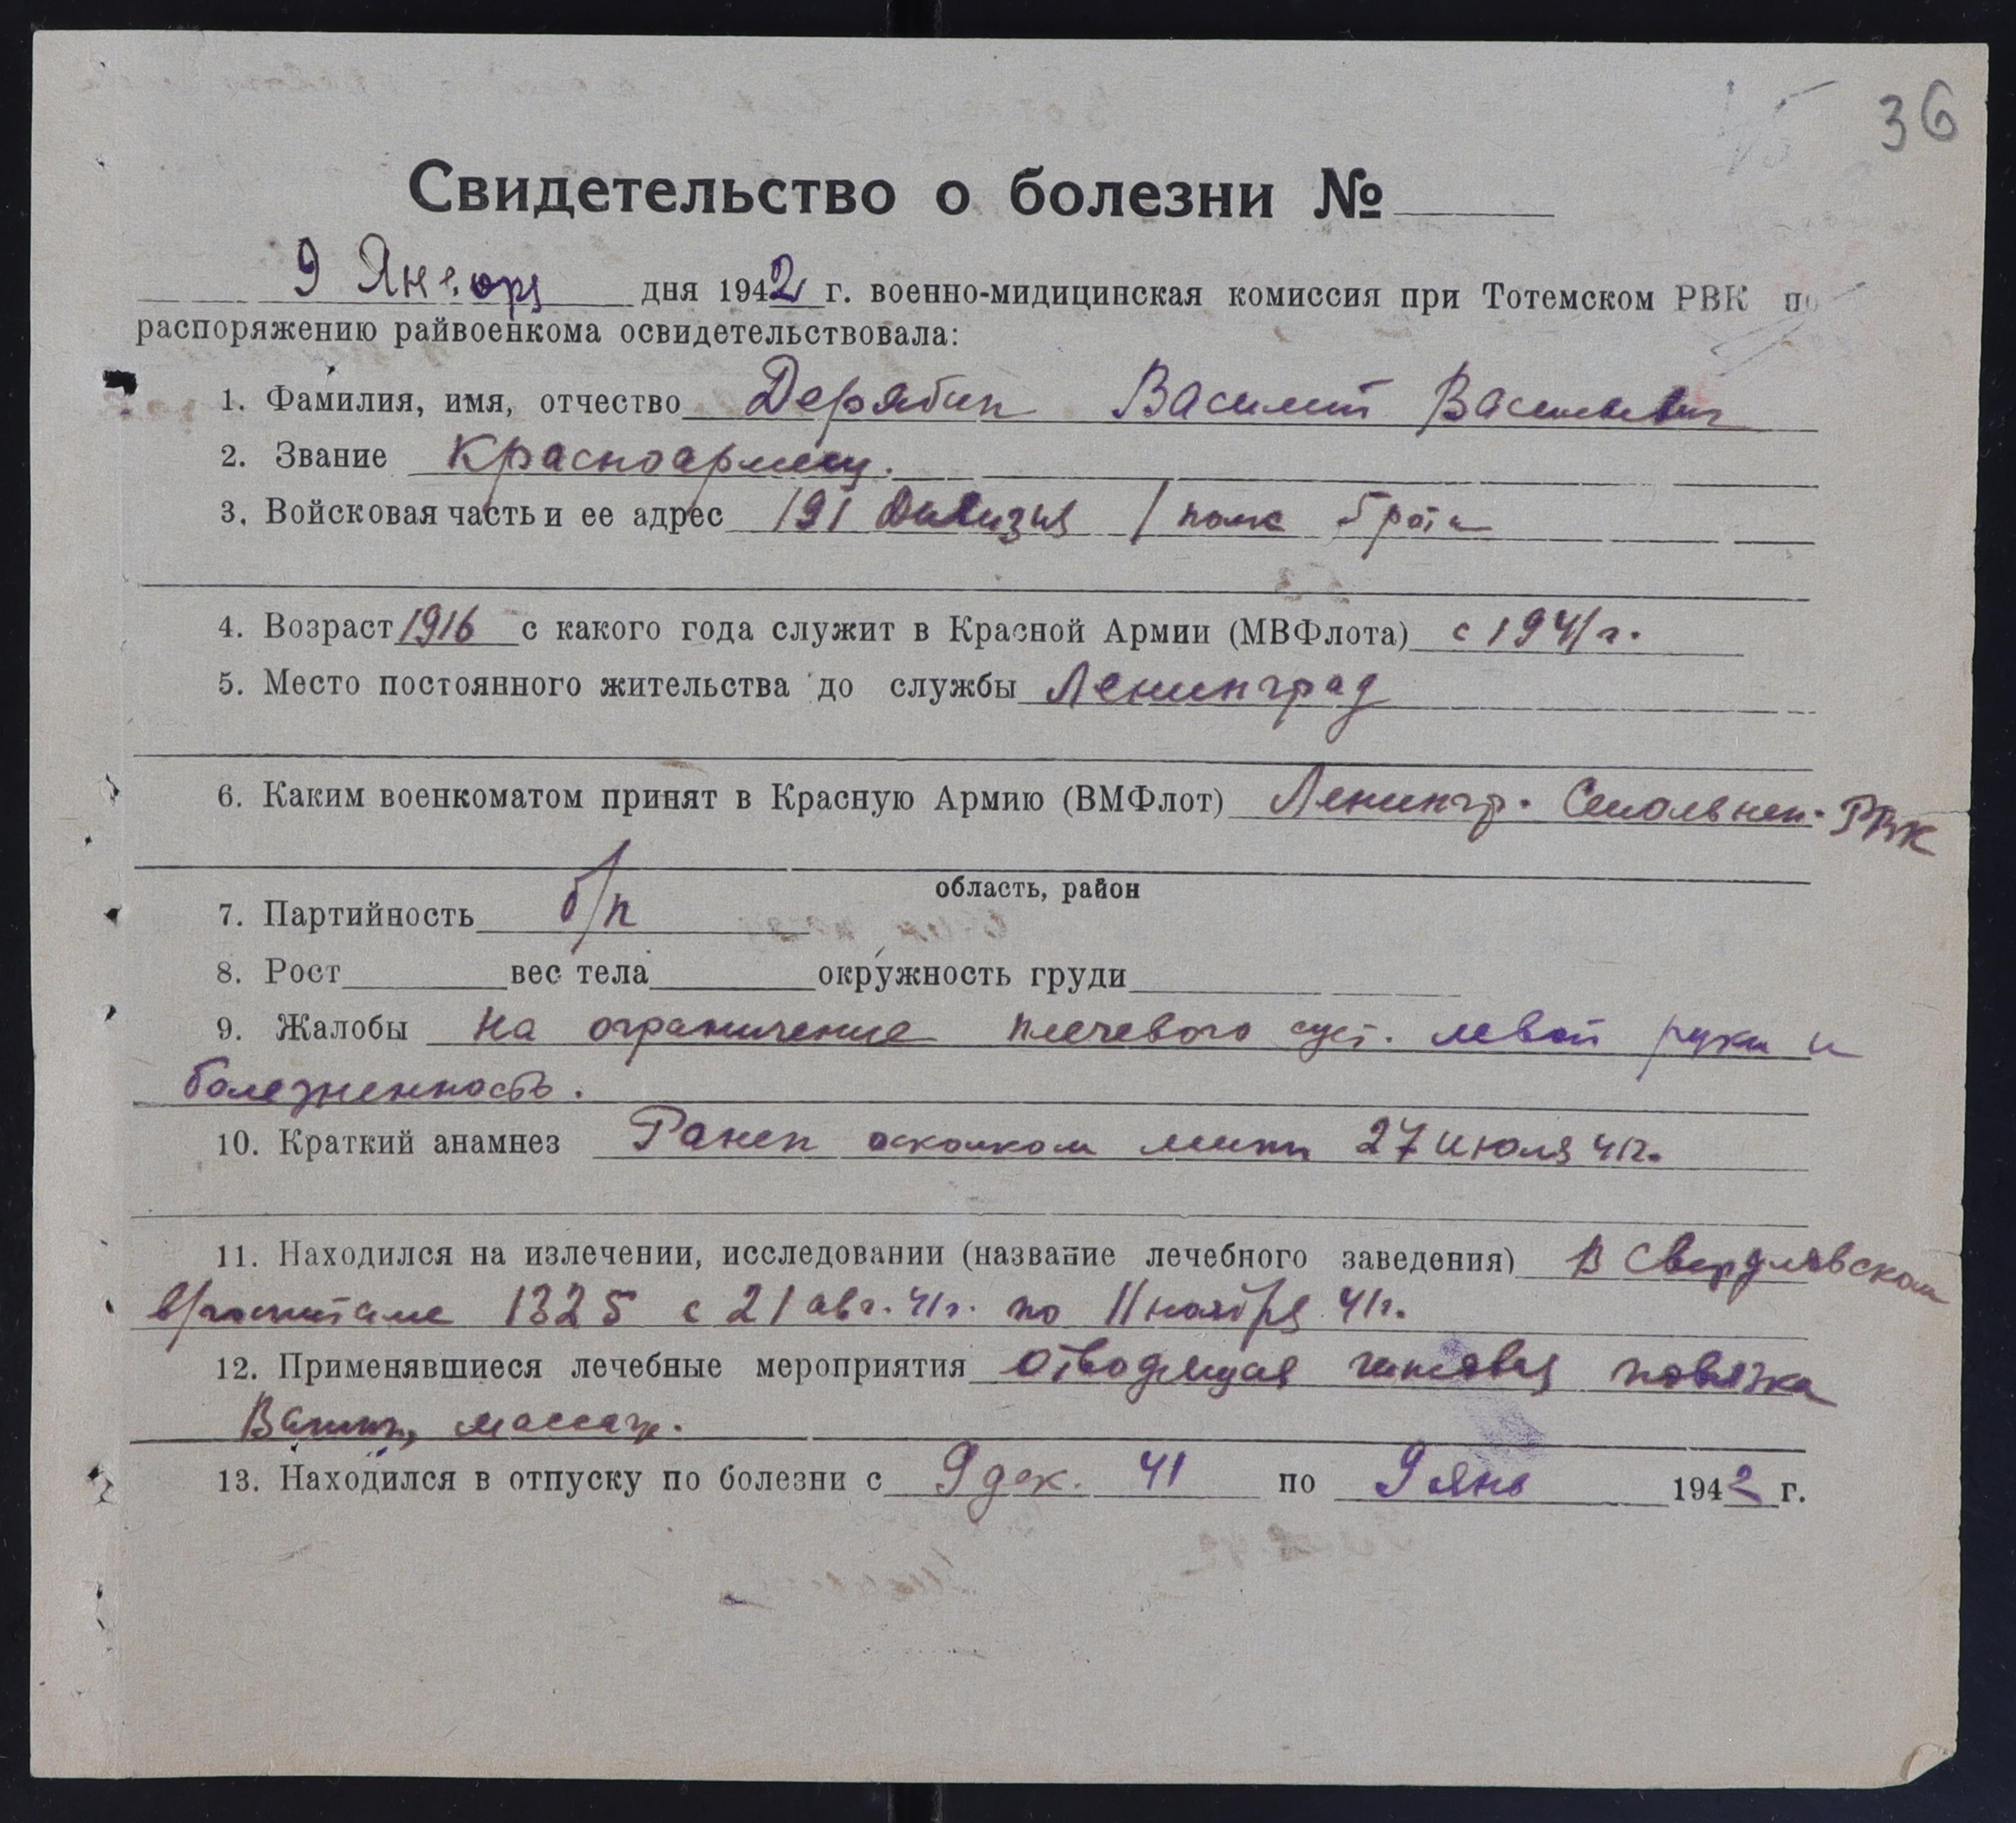 36
Свидетельство о болезни №
9 Января дня 1942 г. военно-мидицинская комиссия при Тотемском РВК по
распоряжению райвоенкома освидетельствовала:
1. Фамилия, имя, отчество Дерябин Василий Васильевич
2. Звание Красноармеец.
3. Войсковая часть и ее адрес 191 Дивизия 1 полк 5 рота
4. Возраст 1916 с какого года служит в Красной Армии (МВФлота) с 1941 г.
5. Место постоянного жительства до службы Ленинград
6. Каким военкоматом принят в Красную Армию (ВМФлот) Ленингр. Смольнен. РВК
область, район
7. Партийность б/п
8. Рост вес тела окружность груди
9. Жалобы На ограничение плечевого суст. левой руки и
болезненность.
10. Краткий анамнез Ранен осколком мины 27 июля 41г.
11. Находился на излечении, исследовании (название лечебного заведения) В Свердловском
в/госпитале 1325 с 21 авг. 41г. по 11 ноября 41г.
12. Применявшиеся лечебные мероприятия Отводящая гипсовая повязка
Ванны, массаж.
13. Находился в отпуску по болезни с 9 дек. 41 по 9 янв 1942 г.